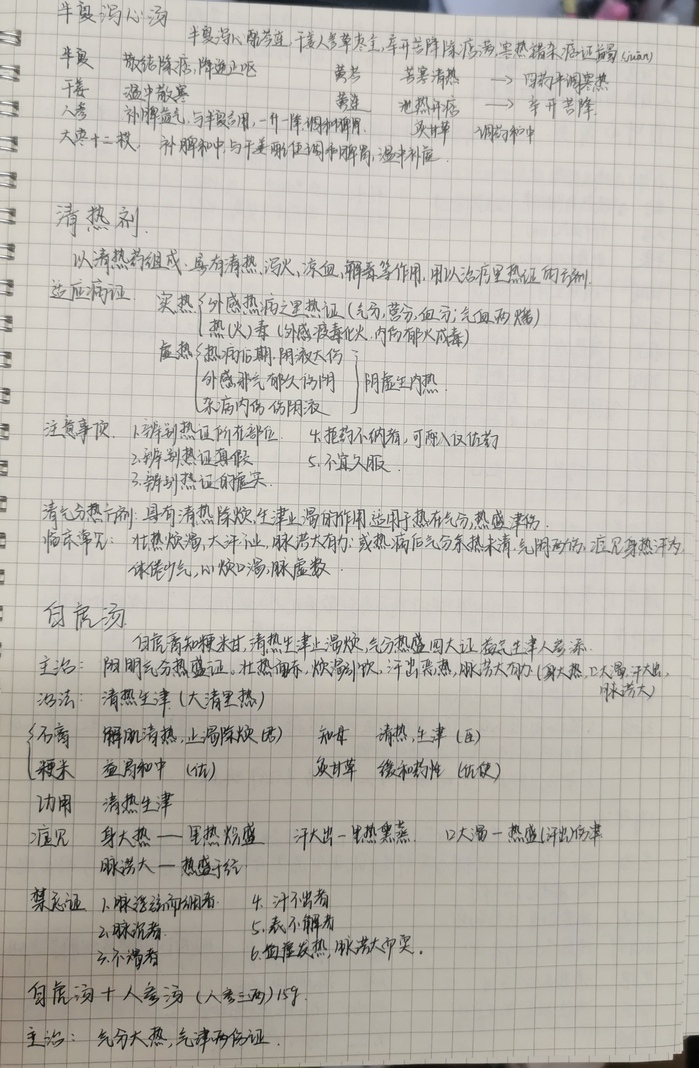 半夏泻心汤
半夏泻心配芩连,干姜人参草枣全,辛开苦降除痞满,寒热错杂痞证蠲(juān)
半夏 散结降痞,降逆止呕 黄芩 苦寒清热 → 四药平调寒热
干姜 温中散寒 黄连 泄热开痞 → 辛开苦降
人参 补脾益气,与半夏合用,一升一降,调和脾胃 炙甘草 调药和中
大枣十二枚 补脾和中,与干姜配伍调和脾胃,温中补虚.
清热剂.
以清热药组成.具有清热,泻火,凉血,解毒等作用,用以治疗里热证的方剂.
适应病证
实热 外感热病之里热证(气分,营分,血分;气血两燔)
热(火)毒(外感疫毒化火,内伤郁火成毒)
虚热 热病后期,阴液大伤
外感邪气郁久伤阴 阴虚生内热.
杂病内伤 伤阴液
注意事项. 1.辨别热证所在部位. 4.拒药不纳者,可配入反佐药
2.辨别热证真假 5.不宜久服.
3.辨别热证的虚实.
清气分热方剂:具有清热除烦,生津止渴的作用.适用于热在气分,热盛津伤.
临床常见: 壮热烦渴,大汗,脉洪大有力;或热病后气分余热未清,气阴两伤,症见身热汗多,
体倦少气,心烦口渴,脉虚数.
白虎汤
白虎膏知粳米甘,清热生津止渴烦,气分热盛四大证,益气生津人参添.
主治: 阳明气分热盛证。壮热面赤,烦渴引饮,汗出恶热,脉洪大有力(身大热,口大渴,汗大出,
脉洪大)
治法: 清热生津(大清里热)
石膏 解肌清热,止渴除烦(君) 知母 清热,生津(臣)
粳米 益胃和中(佐) 炙甘草 缓和药性(佐使)
功用 清热生津
症见 身大热—里热炽盛 汗大出—里热熏蒸. 口大渴—热盛(汗出)伤津
脉洪大—热盛于经
禁忌证 1.脉浮 4.汗不出者
2.脉沉者. 5.表不解者
3.不渴者 6.血虚发热,脉洪大.
白虎汤+人参汤(人参三两)15g.
主治: 气分大热,气津两伤证.